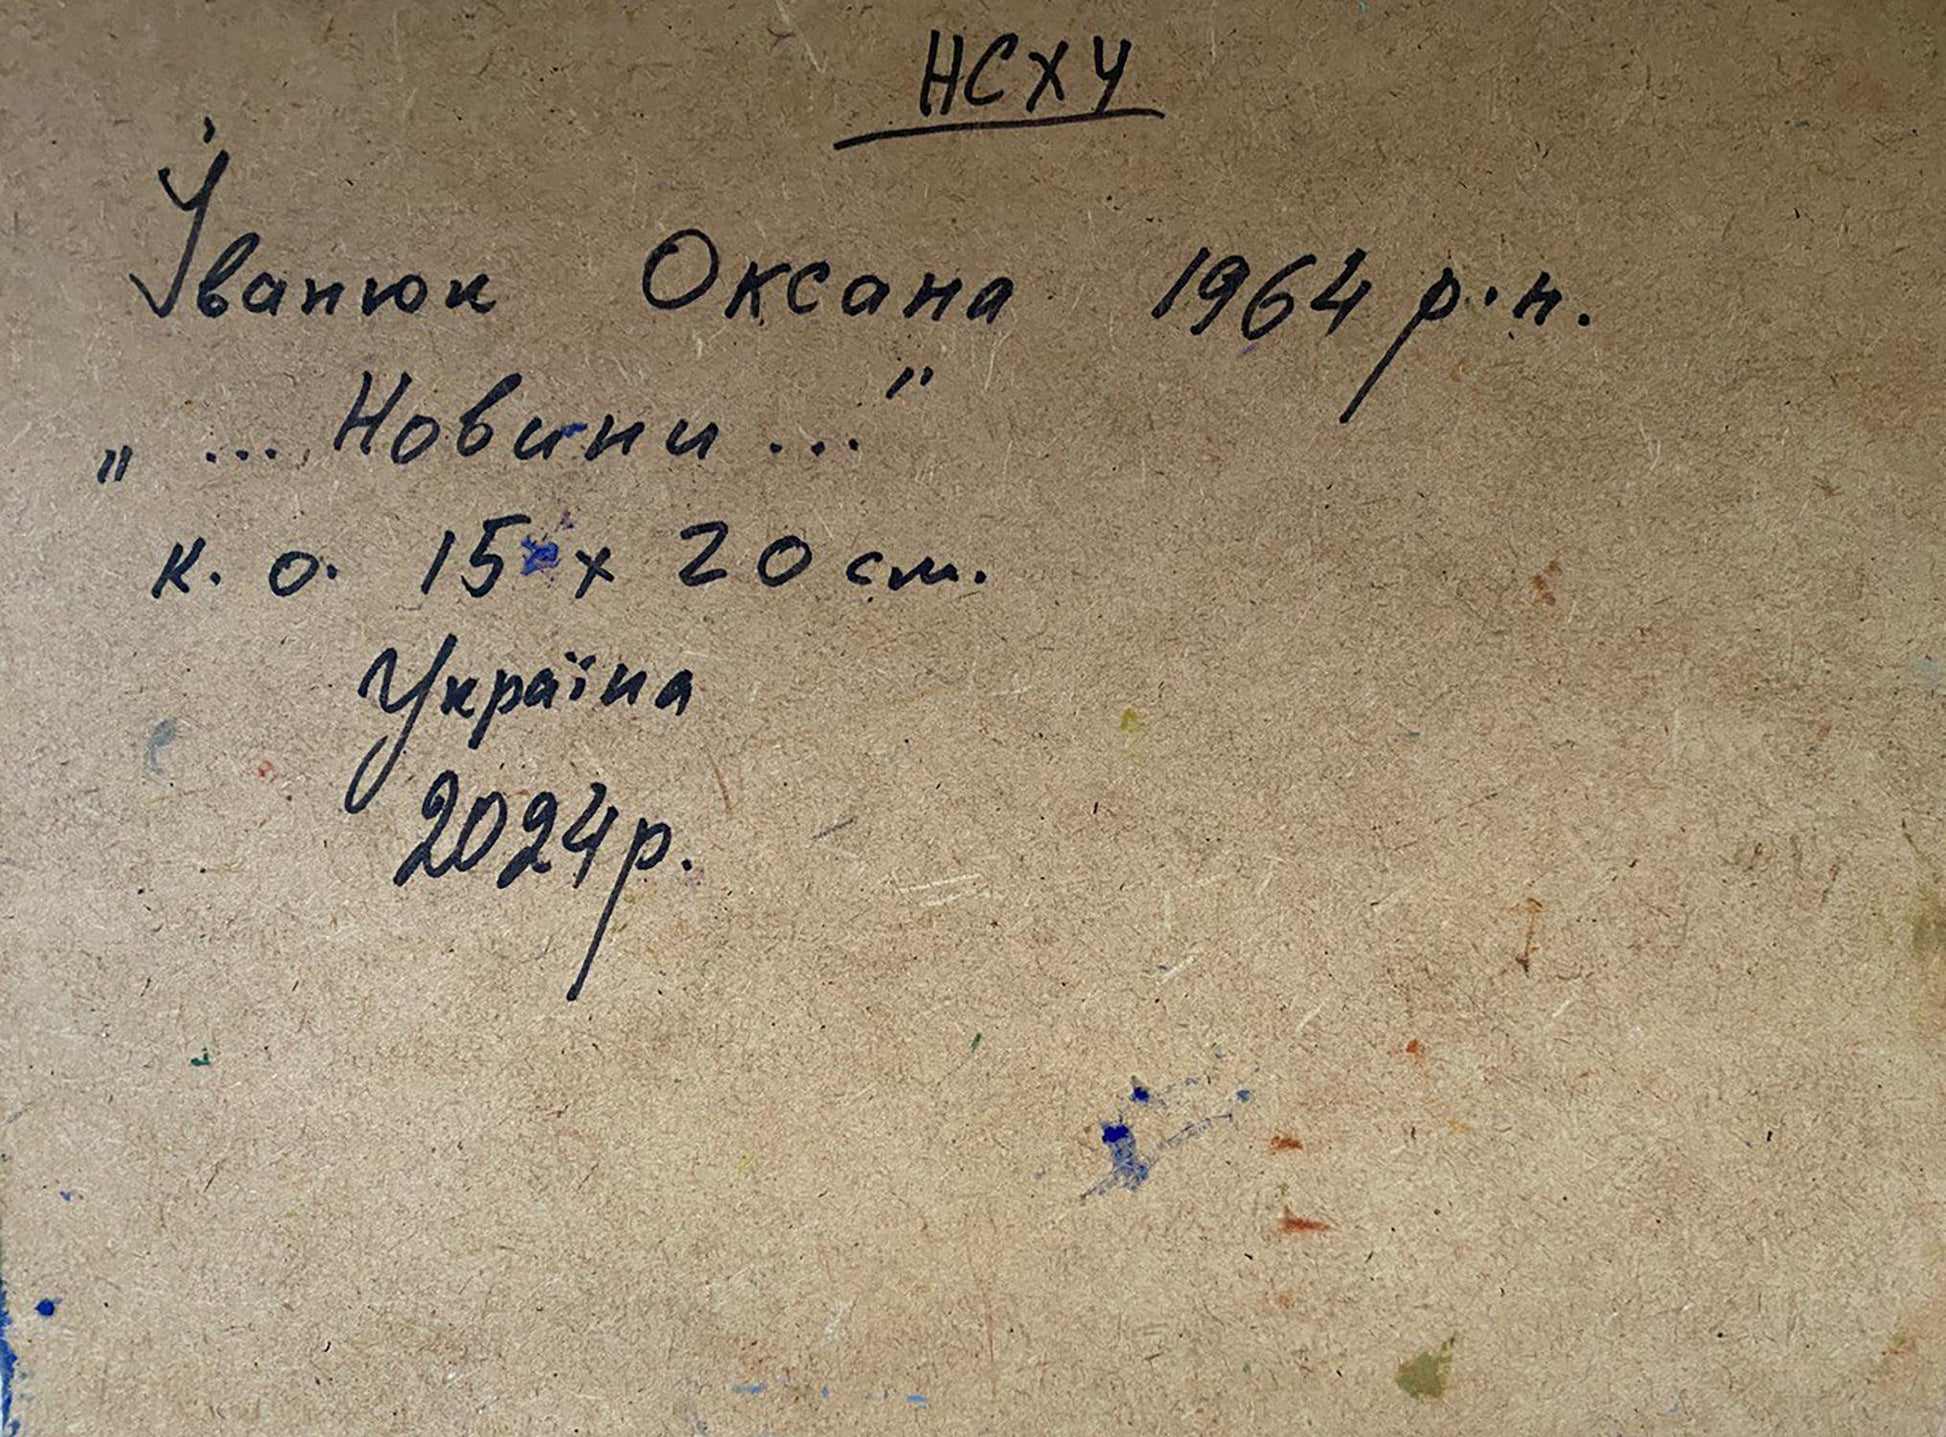 НСХУ
Іванюк Оксана 1964 р.н.
„ ... Новини ... "
к. о. 15 х 20 см.
Україна
2024р.